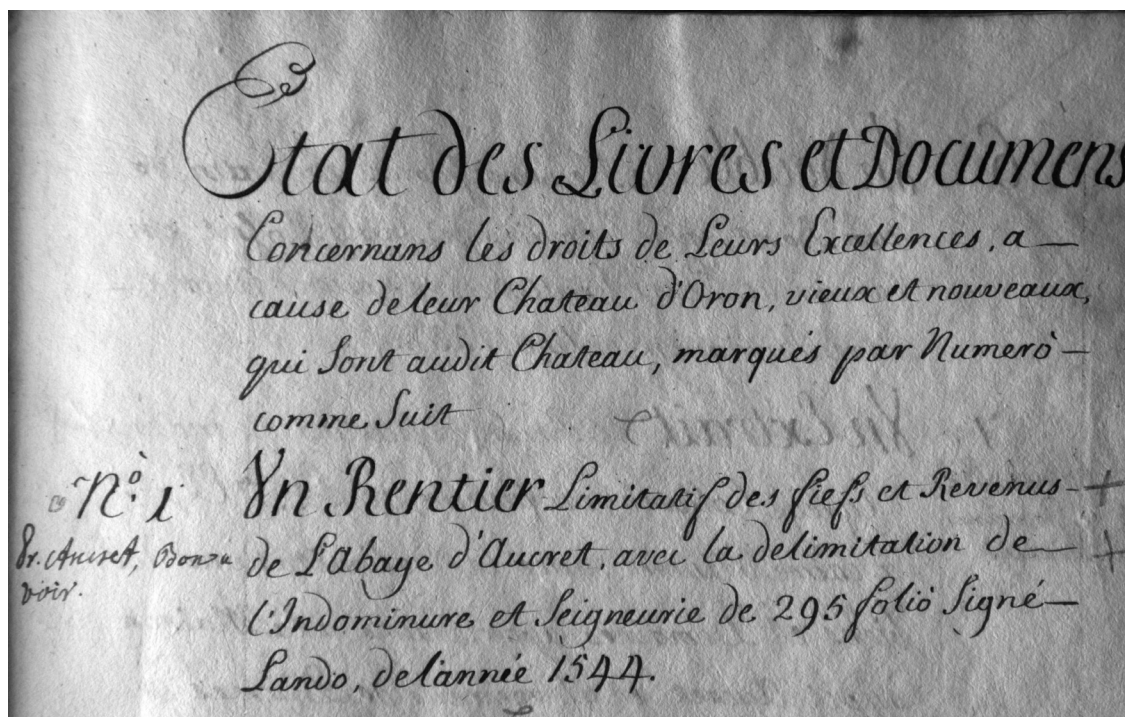 Etat des Livres et Documens
Concernans les droits de Leurs Excellences, a
cause de leur Chateau d'Oron, vieux et nouveaux,
qui Sont audit Chateau, marqués par Numerò
comme Suit
Nº. 1
Un Rentier Limitatif des fiefs et Revenus
de L'Abaye d'Aucret, avec la delimitation de
L'Indominure et Seigneurie de 295 foliò Signé
Lando, de l'année 1544.
Pr. Aucret, Bon à
voir.